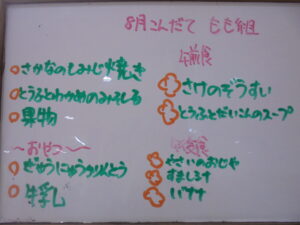 8月こんだて もも組
さかなのもみじ焼き
とうふとわかめのみそしる
果物
〜おやつ〜
ぎゅうにゅうかりんとう
牛乳
午前食
さけのぞうすい
とうふとだいこんのスープ
ささいのおじや
すましけ